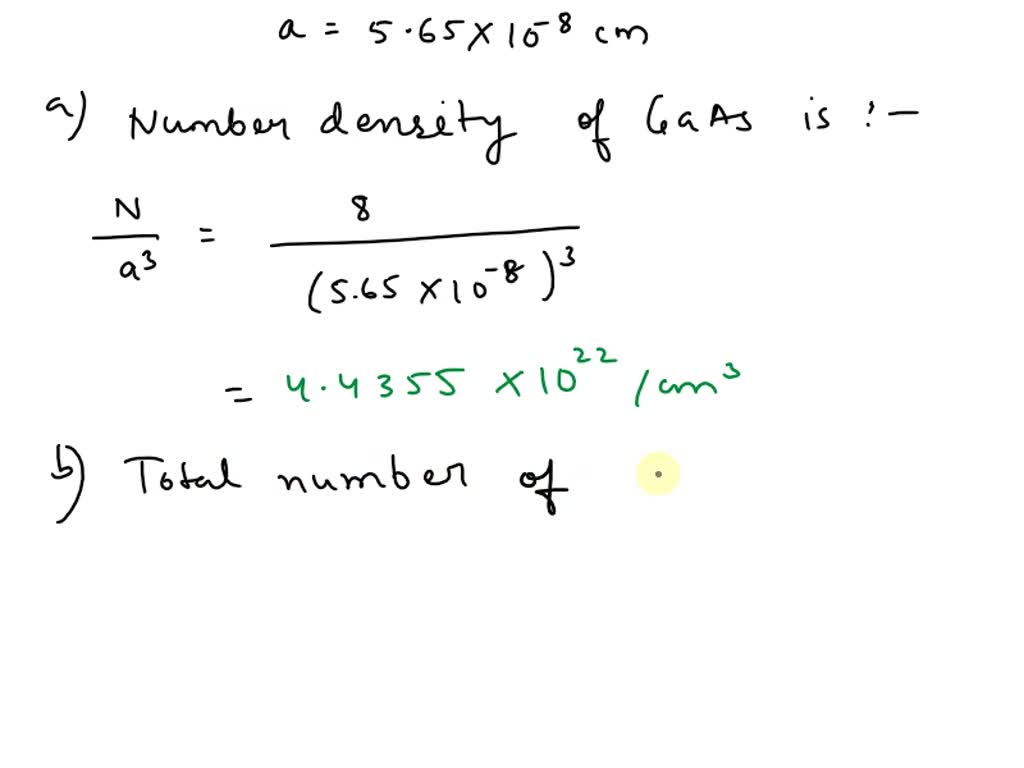 a = 5.65 × 10⁻⁸ cm
a) Number density of GaAs is :-
N / a³ = 8 / (5.65 × 10⁻⁸)³
= 4.4355 × 10²² / cm³
b) Total number of